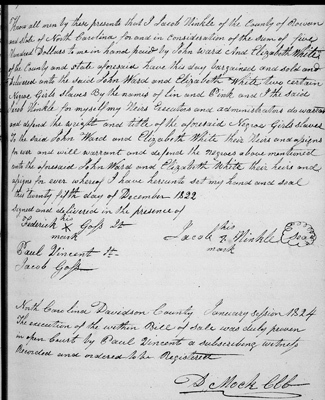 Know all men by these presents that I Jacob Hinkle of the County of Rowan
and State of North Carolina for and in consideration of the sum of five
Hundred Dollars to me in hand paid by John Ward And Elizabeth White
of the County and state aforesaid have this day bargained and sold and
delivered unto the said John Ward and Elizabeth White two certain
Negroe Girls slaves By the names of Lin and and I the said
Jacob Hinkle for myself my Heirs Executors and administrators do warrant
and defend the right and title of the aforesaid Negroe Girls slaves
To the said John Ward and Elizabeth White their Heirs and assigns
for ever and will warrant and defend the Negroes above mentioned
unto the aforesaid John Ward and Elizabeth White their heirs and
assigns for ever whereof I have hereunto set my hand and seal
this twenty fifth day of December 1822
Signed and delivered in the presence of
Frederick his X mark Goss Jt
Jacob his X mark Hinkle Seal
Paul Vincent Jt
Jacob Goss
North Carolina Davidson County January session 1824
The execution of the within Bill of Sale was duly proven
in open Court by Paul Vincent a subscribing witness
Recorded and ordered to be Registered
D Mock Clk